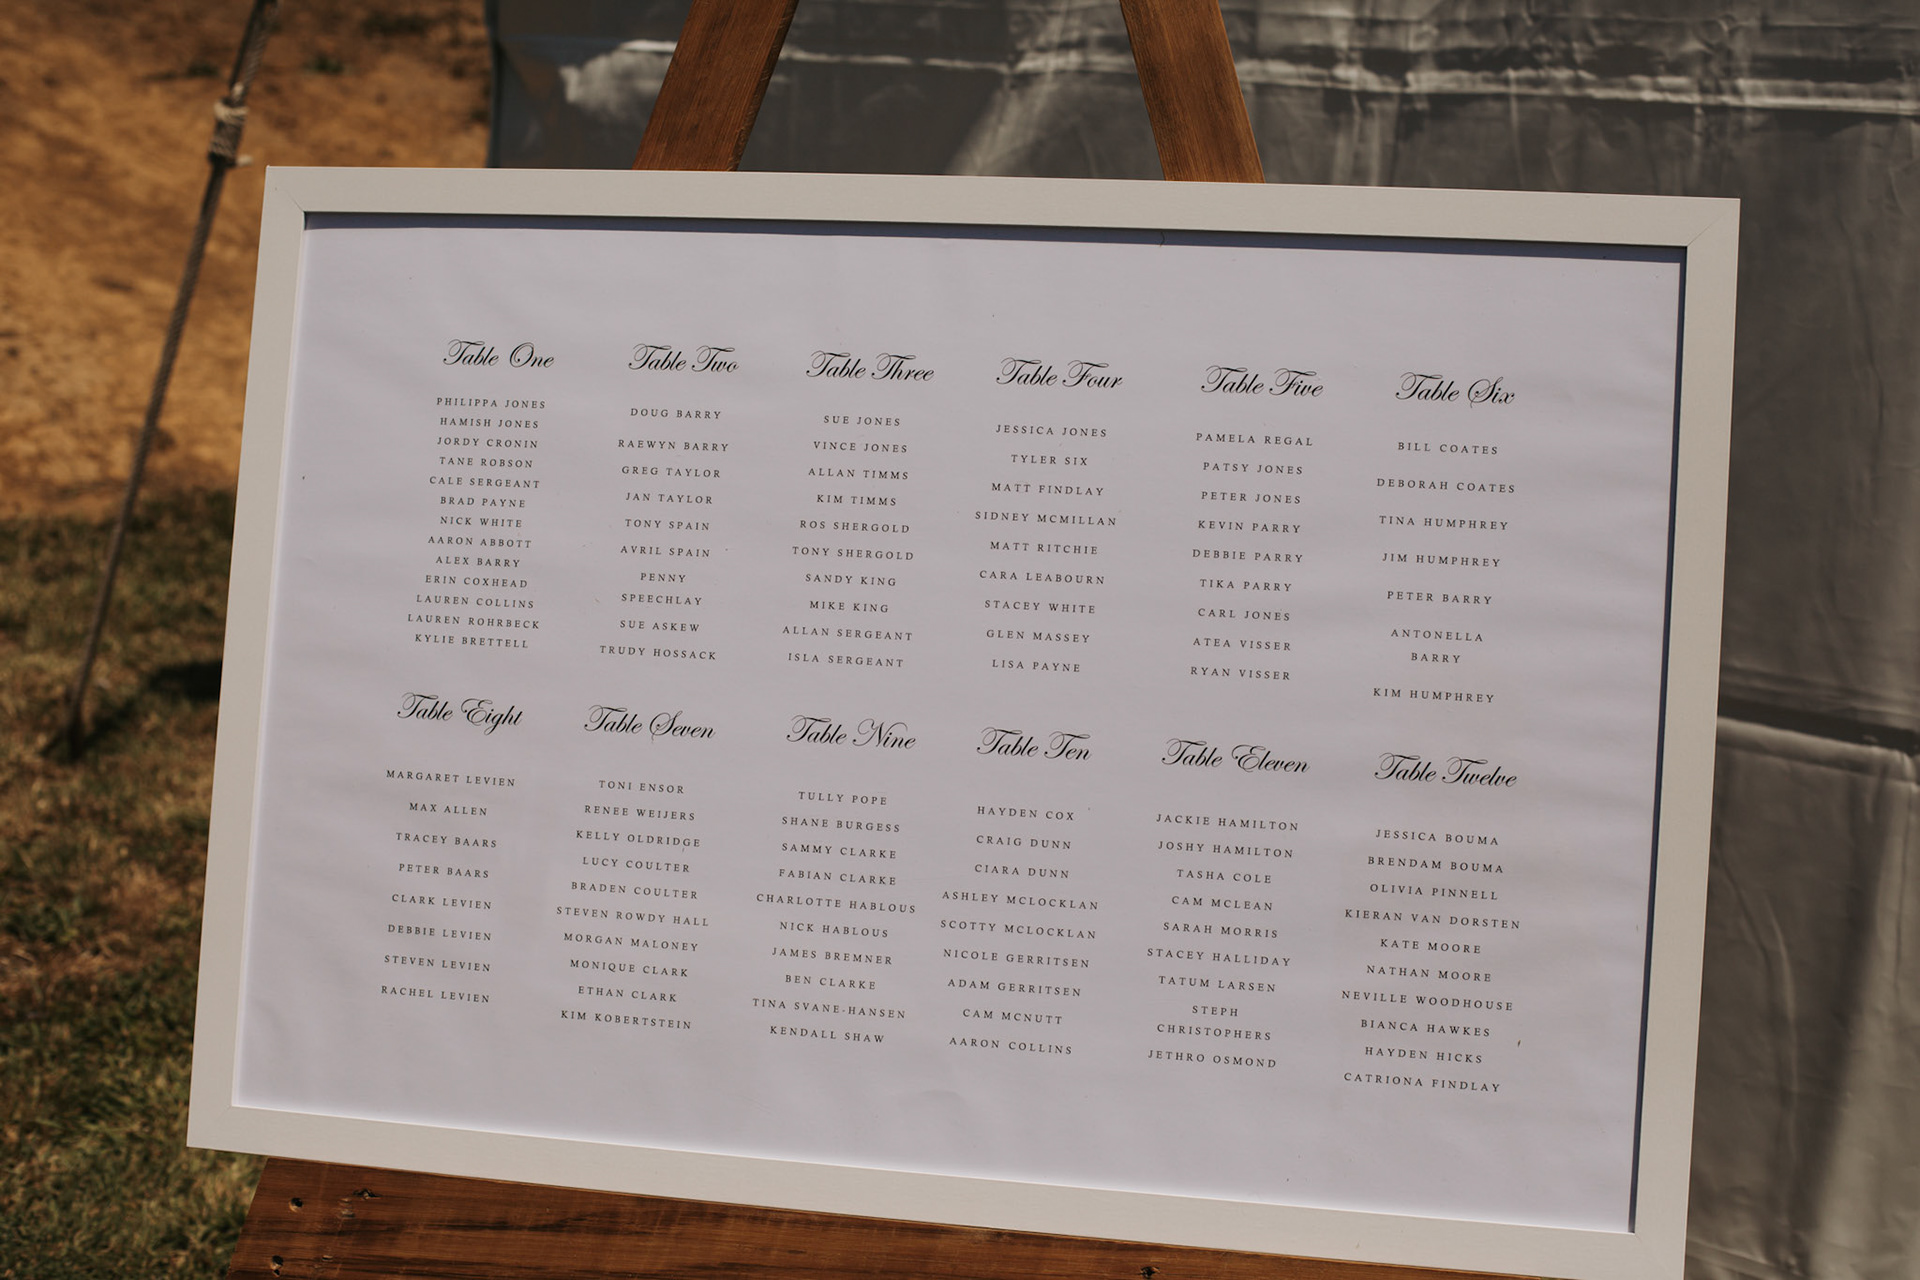 Table One
PHILIPPA JONES
HAMISH JONES
JORDY CRONIN
TANE ROBSON
CALE SERGEANT
BRAD PAYNE
NICK WHITE
AARON ABBOTT
ALEX BARRY
ERIN COXHEAD
LAUREN COLLINS
LAUREN ROHRBECK
KYLIE BRETTELL
Table Two
DOUG BARRY
RAEWYN BARRY
GREG TAYLOR
JAN TAYLOR
TONY SPAIN
AVRIL SPAIN
PENNY
SPEECHLAY
SUE ASKEW
TRUDY HOSSACK
Table Three
SUE JONES
VINCE JONES
ALLAN TIMMS
KIM TIMMS
ROS SHERGOLD
TONY SHERGOLD
SANDY KING
MIKE KING
ALLAN SERGEANT
ISLA SERGEANT
Table Four
JESSICA JONES
TYLER SIX
MATT FINDLAY
SIDNEY MCMILLAN
MATT RITCHIE
CARA LEABOURN
STACEY WHITE
GLEN MASSEY
LISA PAYNE
Table Five
PAMELA REGAL
PATSY JONES
PETER JONES
KEVIN PARRY
DEBBIE PARRY
TIKA PARRY
CARL JONES
ATEA VISSER
RYAN VISSER
Table Six
BILL COATES
DEBORAH COATES
TINA HUMPHREY
JIM HUMPHREY
PETER BARRY
ANTONELLA
BARRY
KIM HUMPHREY
Table Eight
MARGARET LEVIEN
MAX ALLEN
TRACEY BAARS
PETER BAARS
CLARK LEVIEN
DEBBIE LEVIEN
STEVEN LEVIEN
RACHEL LEVIEN
Table Seven
TONI ENSOR
RENEE WEIJERS
KELLY OLDRIDGE
LUCY COULTER
BRADEN COULTER
STEVEN ROWDY HALL
MORGAN MALONEY
MONIQUE CLARK
ETHAN CLARK
KIM KOBERTSTEIN
Table Nine
TULLY POPE
SHANE BURGESS
SAMMY CLARKE
FABIAN CLARKE
CHARLOTTE HABLOUS
NICK HABLOUS
JAMES BREMNER
BEN CLARKE
TINA SVANE-HANSEN
KENDALL SHAW
Table Ten
HAYDEN COX
CRAIG DUNN
CIARA DUNN
ASHLEY MCLOCKLAN
SCOTTY MCLOCKLAN
NICOLE GERRITSEN
ADAM GERRITSEN
CAM MCNUTT
AARON COLLINS
Table Eleven
JACKIE HAMILTON
JOSHY HAMILTON
TASHA COLE
CAM MCLEAN
SARAH MORRIS
STACEY HALLIDAY
TATUM LARSEN
STEPH
CHRISTOPHERS
JETHRO OSMOND
Table Twelve
JESSICA BOUMA
BRENDAM BOUMA
OLIVIA PINNELL
KIERAN VAN DORSTEN
KATE MOORE
NATHAN MOORE
NEVILLE WOODHOUSE
BIANCA HAWKES
HAYDEN HICKS
CATRIONA FINDLAY